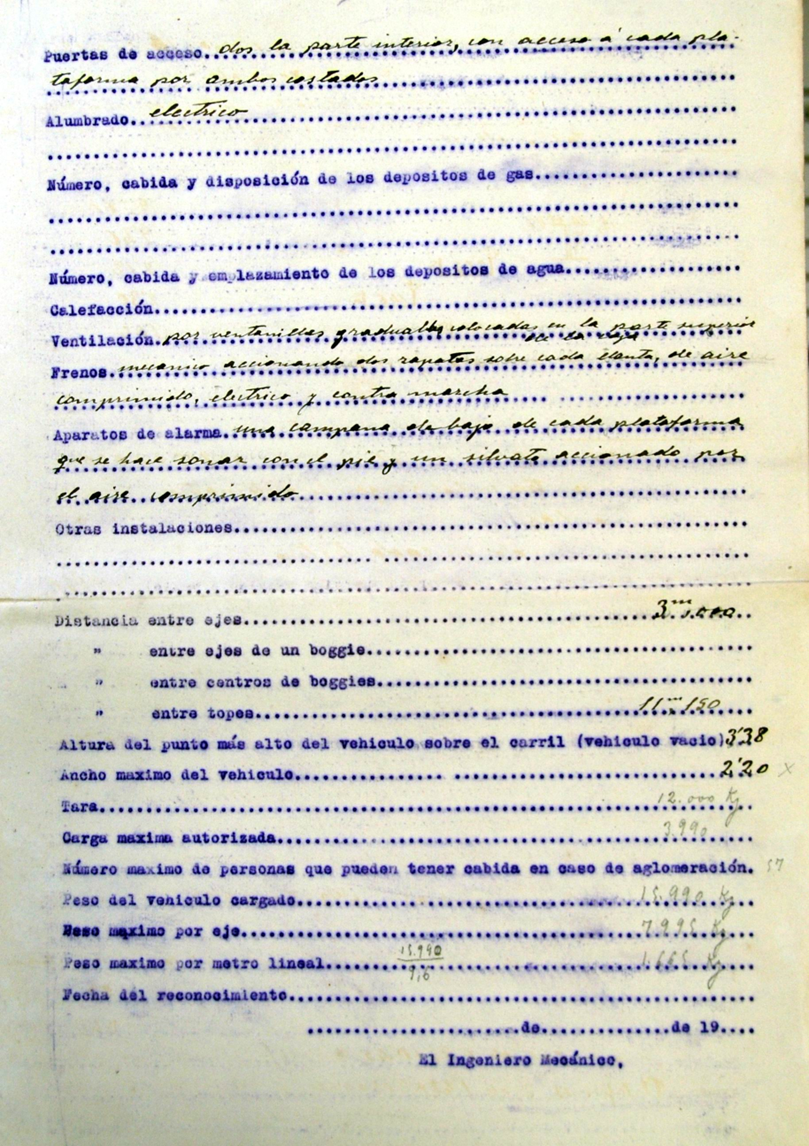 Puertas de acceso dos la parte interior, con acceso á cada pla-
taforma por ambos costados
Alumbrado electrico
Número, cabida y disposición de los depositos de gas
Número, cabida y emplazamiento de los depositos de agua
Calefacción
Ventilación por ventanillas graduables colocadas en la parte superior
de la caja
Frenos mecanico accionando dos zapatas sobre cada llanta, de aire
comprimido, electrico y contra marcha
Aparatos de alarma una campana debajo de cada plataforma
que se hace sonar con el pie y un silvato accionado por
el aire comprimido
Otras instalaciones
Distancia entre ejes 3m,000
" entre ejes de un boggie
" entre centros de boggies
" entre topes 11m 150
Altura del punto más alto del vehiculo sobre el carril (vehiculo vacio) 3'38
Ancho maximo del vehiculo 2'20 x
Tara 12.000 Kg
Carga maxima autorizada 3.990
Número maximo de personas que pueden tener cabida en caso de aglomeración. 57
Peso del vehiculo cargado 15.990 Kg
Peso maximo por eje 7.995 Kg
Peso maximo por metro lineal 15.990/9,6 1.665 Kg
Fecha del reconocimiento
de de 19
El Ingeniero Mecánico,